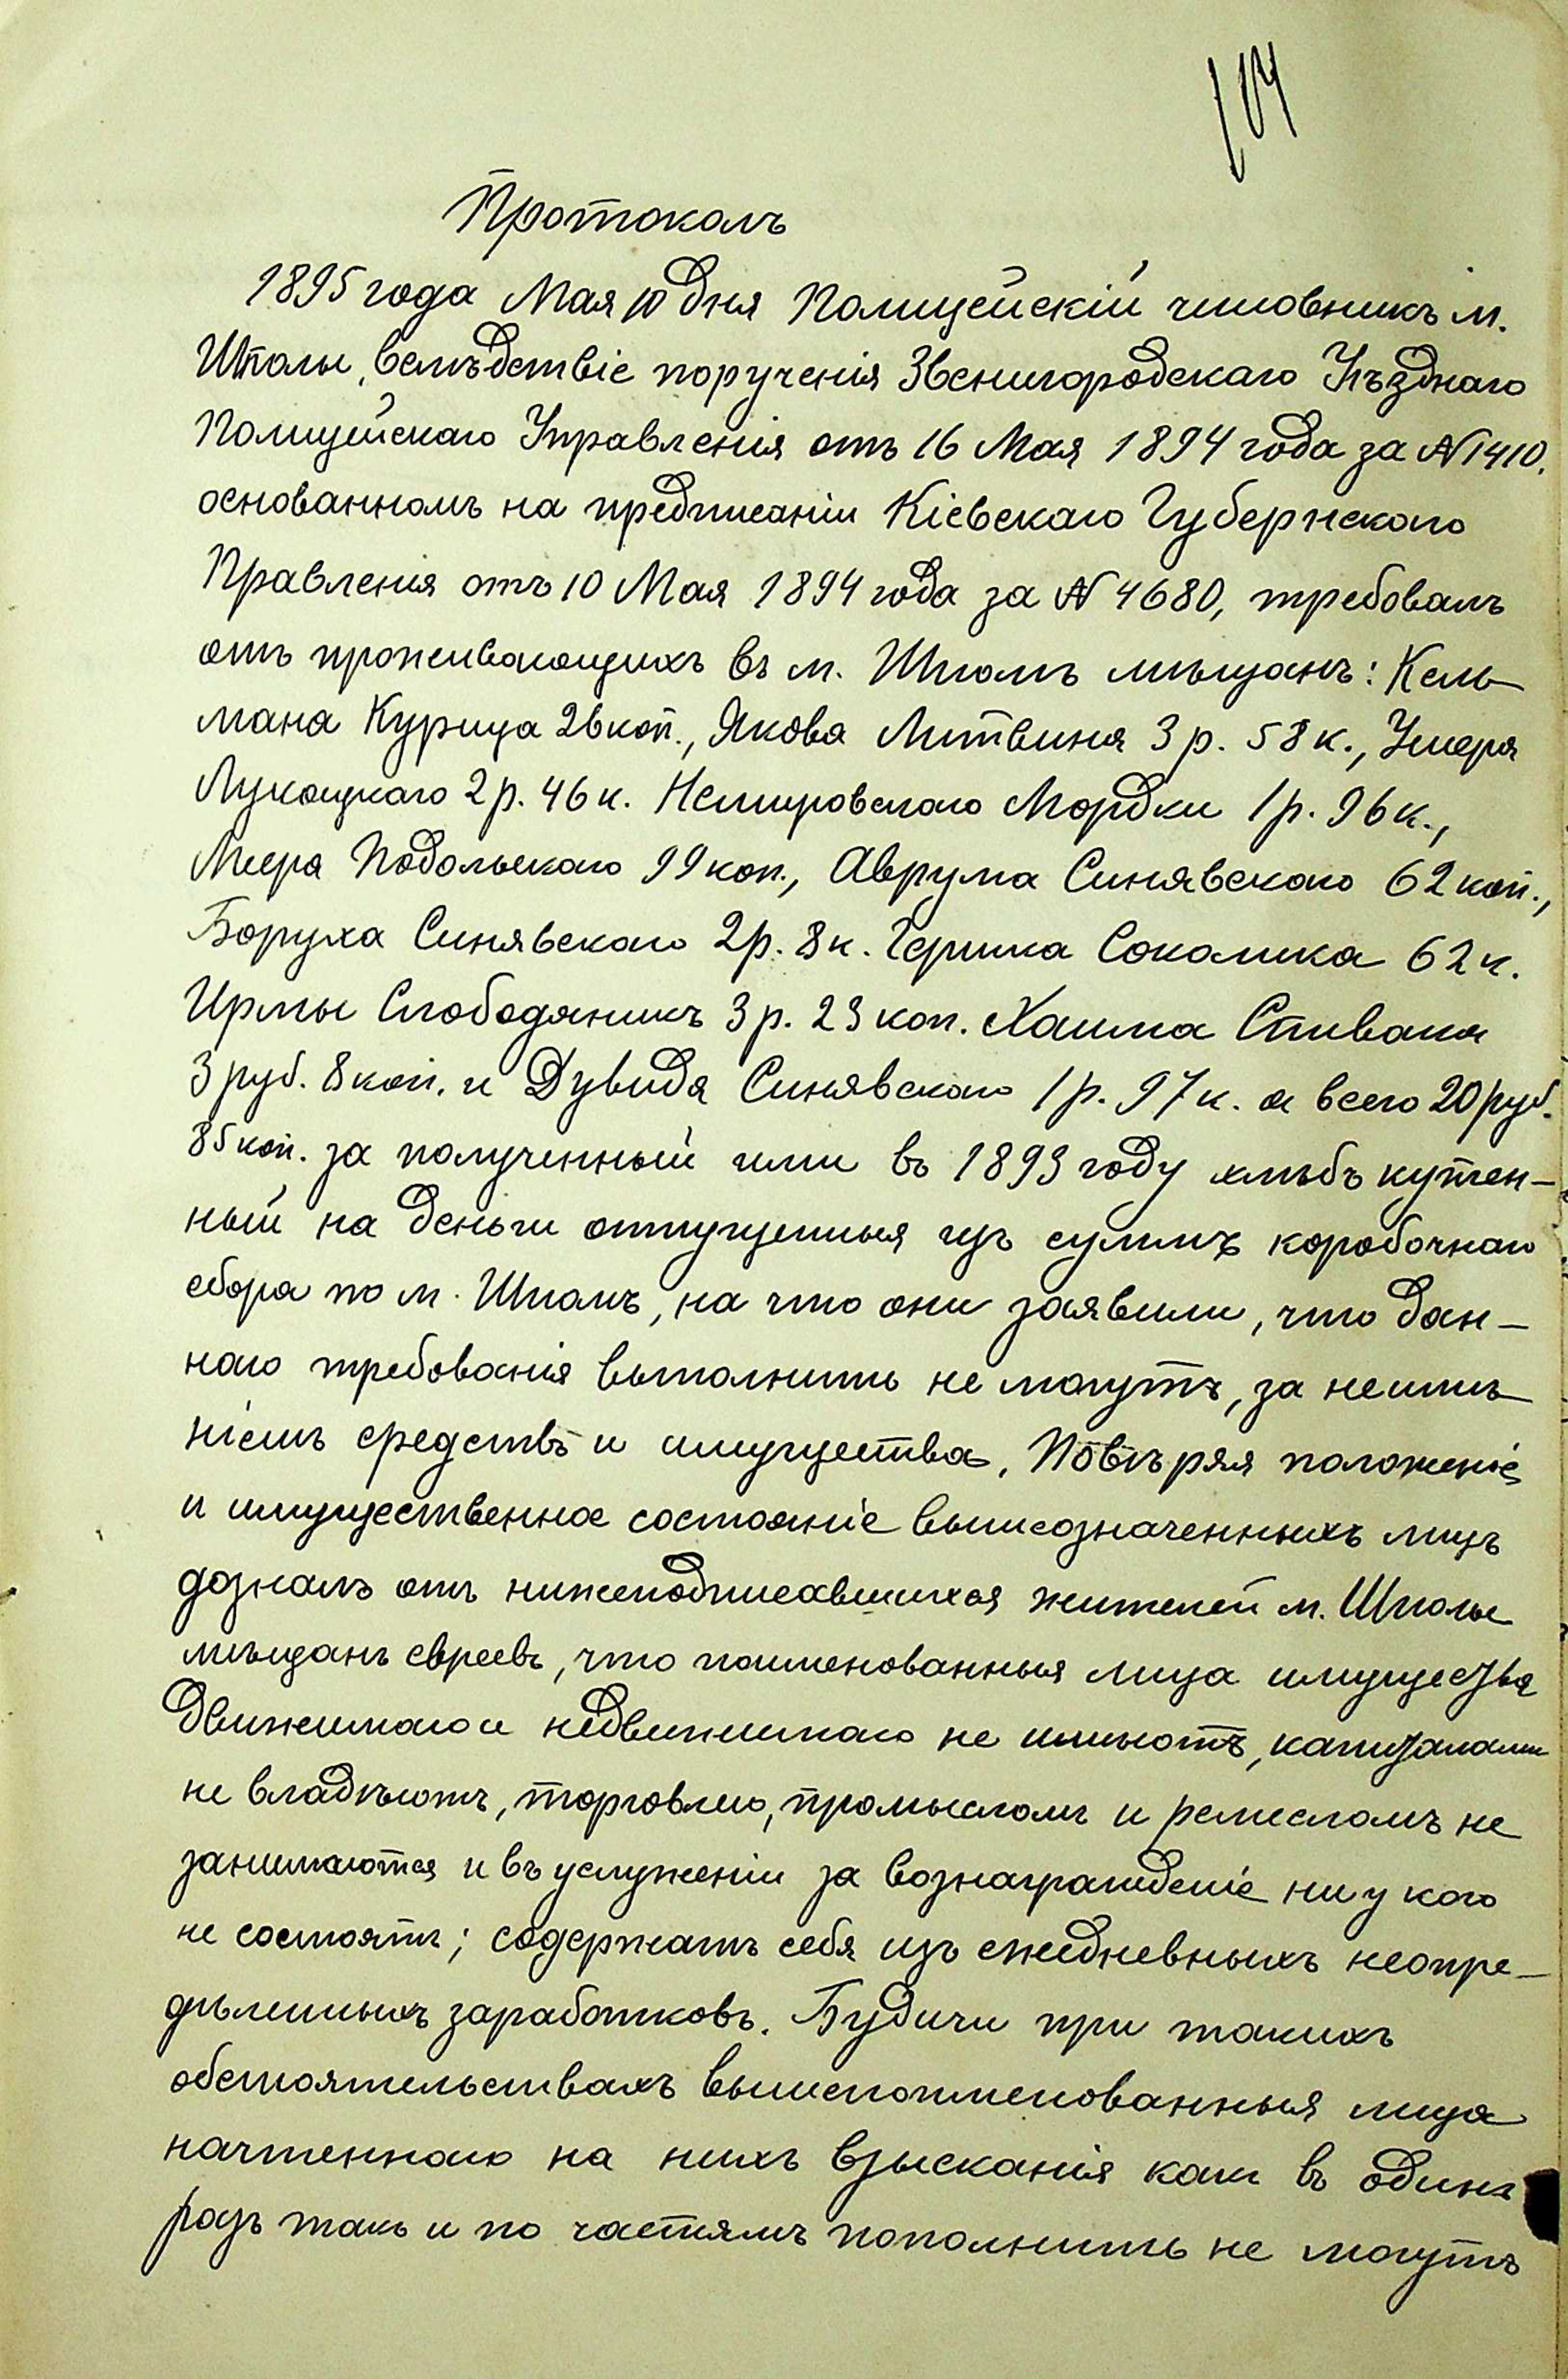 104
Протоколъ
1895 года Мая 10 дня Полицейскій чиновникъ м.
Шполы, вслѣдствіе порученія Звенигородскаго Уѣзднаго
Полицейскаго Управленія отъ 16 Мая 1894 года за № 1410,
основанномъ на предписаніи Кіевскаго Губернскаго
Правленія отъ 10 Мая 1894 года за № 4680, требовалъ
отъ проживающихъ въ м. Шполѣ мѣщанъ: Кель-
мана Курица 26 коп., Якова Литвина 3 р. 58 к., Ушера
Лукацкаго 2 р. 46 к. Немировскаго Мордки 1 р. 96 к.,
Меера Подольскаго 99 коп., Аврума Синявскаго 62 коп.,
Боруха Синявскаго 2 р. 8 к. Гершка Соколика 62 к.
Ирмы Слободяникъ 3 р. 23 коп. Хаима Спивака
3 руб. 8 коп. и Дувида Синявскаго 1 р. 97 к. а всего 20 руб.
85 коп. за полученный ими въ 1893 году хлѣбъ куплен-
ный на деньги отпущенныя изъ суммъ коробочнаго
сбора по м. Шполѣ, на что они заявили, что дан-
наго требованія выполнить не могутъ, за неимѣ
ніемъ средствъ и имущества. Повѣряя положеніе
и имущественное состояніе вышеозначенныхъ лицъ
дозналъ отъ нижеподписавшихся жителей м. Шполы
мѣщанъ евреевъ, что поименованныя лица имущества
движимаго и недвижимаго не имѣютъ, капиталами
не владѣютъ, торговлею, промысломъ и ремесломъ не
занимаются и въ услуженіи за вознагражденіе ни у кого
не состоятъ; содержатъ себя изъ ежедневныхъ неопре-
дѣленныхъ заработковъ. Будучи при такихъ
обстоятельствахъ вышепоименованныя лица
начтеннаго на нихъ взысканія какъ въ одинъ
разъ такъ и по частямъ пополнить не могутъ